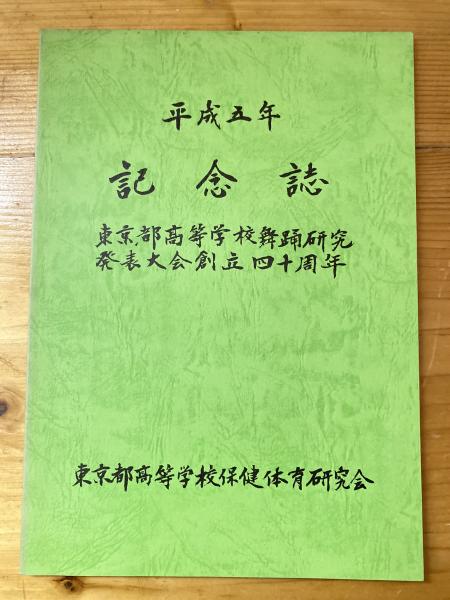 平成五年
記念誌
東京都高等学校舞踊研究
発表大会創立四十周年
東京都高等学校保健体育研究会